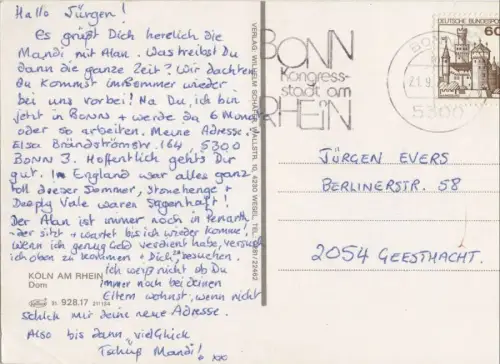 Hallo Jürgen!
Es grüßt Dich herzlich die
Mandi mit Alan. Was treibst Du
dann die ganze Zeit? Wir dachten
du kommst im Sommer wieder
bei uns vorbei! Na Du, ich bin
jetzt in BONN + werde da 6 Monate
oder so arbeiten. Meine Adresse:
Elsa Brändströmstr. 164, 5300
BONN 3. Hoffentlich gehts Dir
gut. In England war alles ganz
toll dieser Sommer, Stonehenge +
Deeply Vale waren Sagenhaft!
Der Alan ist immer noch in Penarth
der sitzt + wartet bis ich wieder komme!
Wenn ich genug Geld verdient habe, versuch
ich oben zu kommen + Dich besuchen.
Ich weiß nicht ob Du
immer noch bei deinen
Eltern wohnst, wenn nicht
schick mir deine neue Adresse.
Also bis dann, viel Glück
Tschüß Mandi! xxx
KÖLN AM RHEIN
Dom
31 928.17
VERLAG: WILHELM 4230 WESEL, TEL.
BONN
Kongress-
stadt am
RHEIN
5300
DEUTSCHE BUNDESPOST
60
JÜRGEN EVERS
BERLINERSTR. 58
2054 GEESTHACHT.